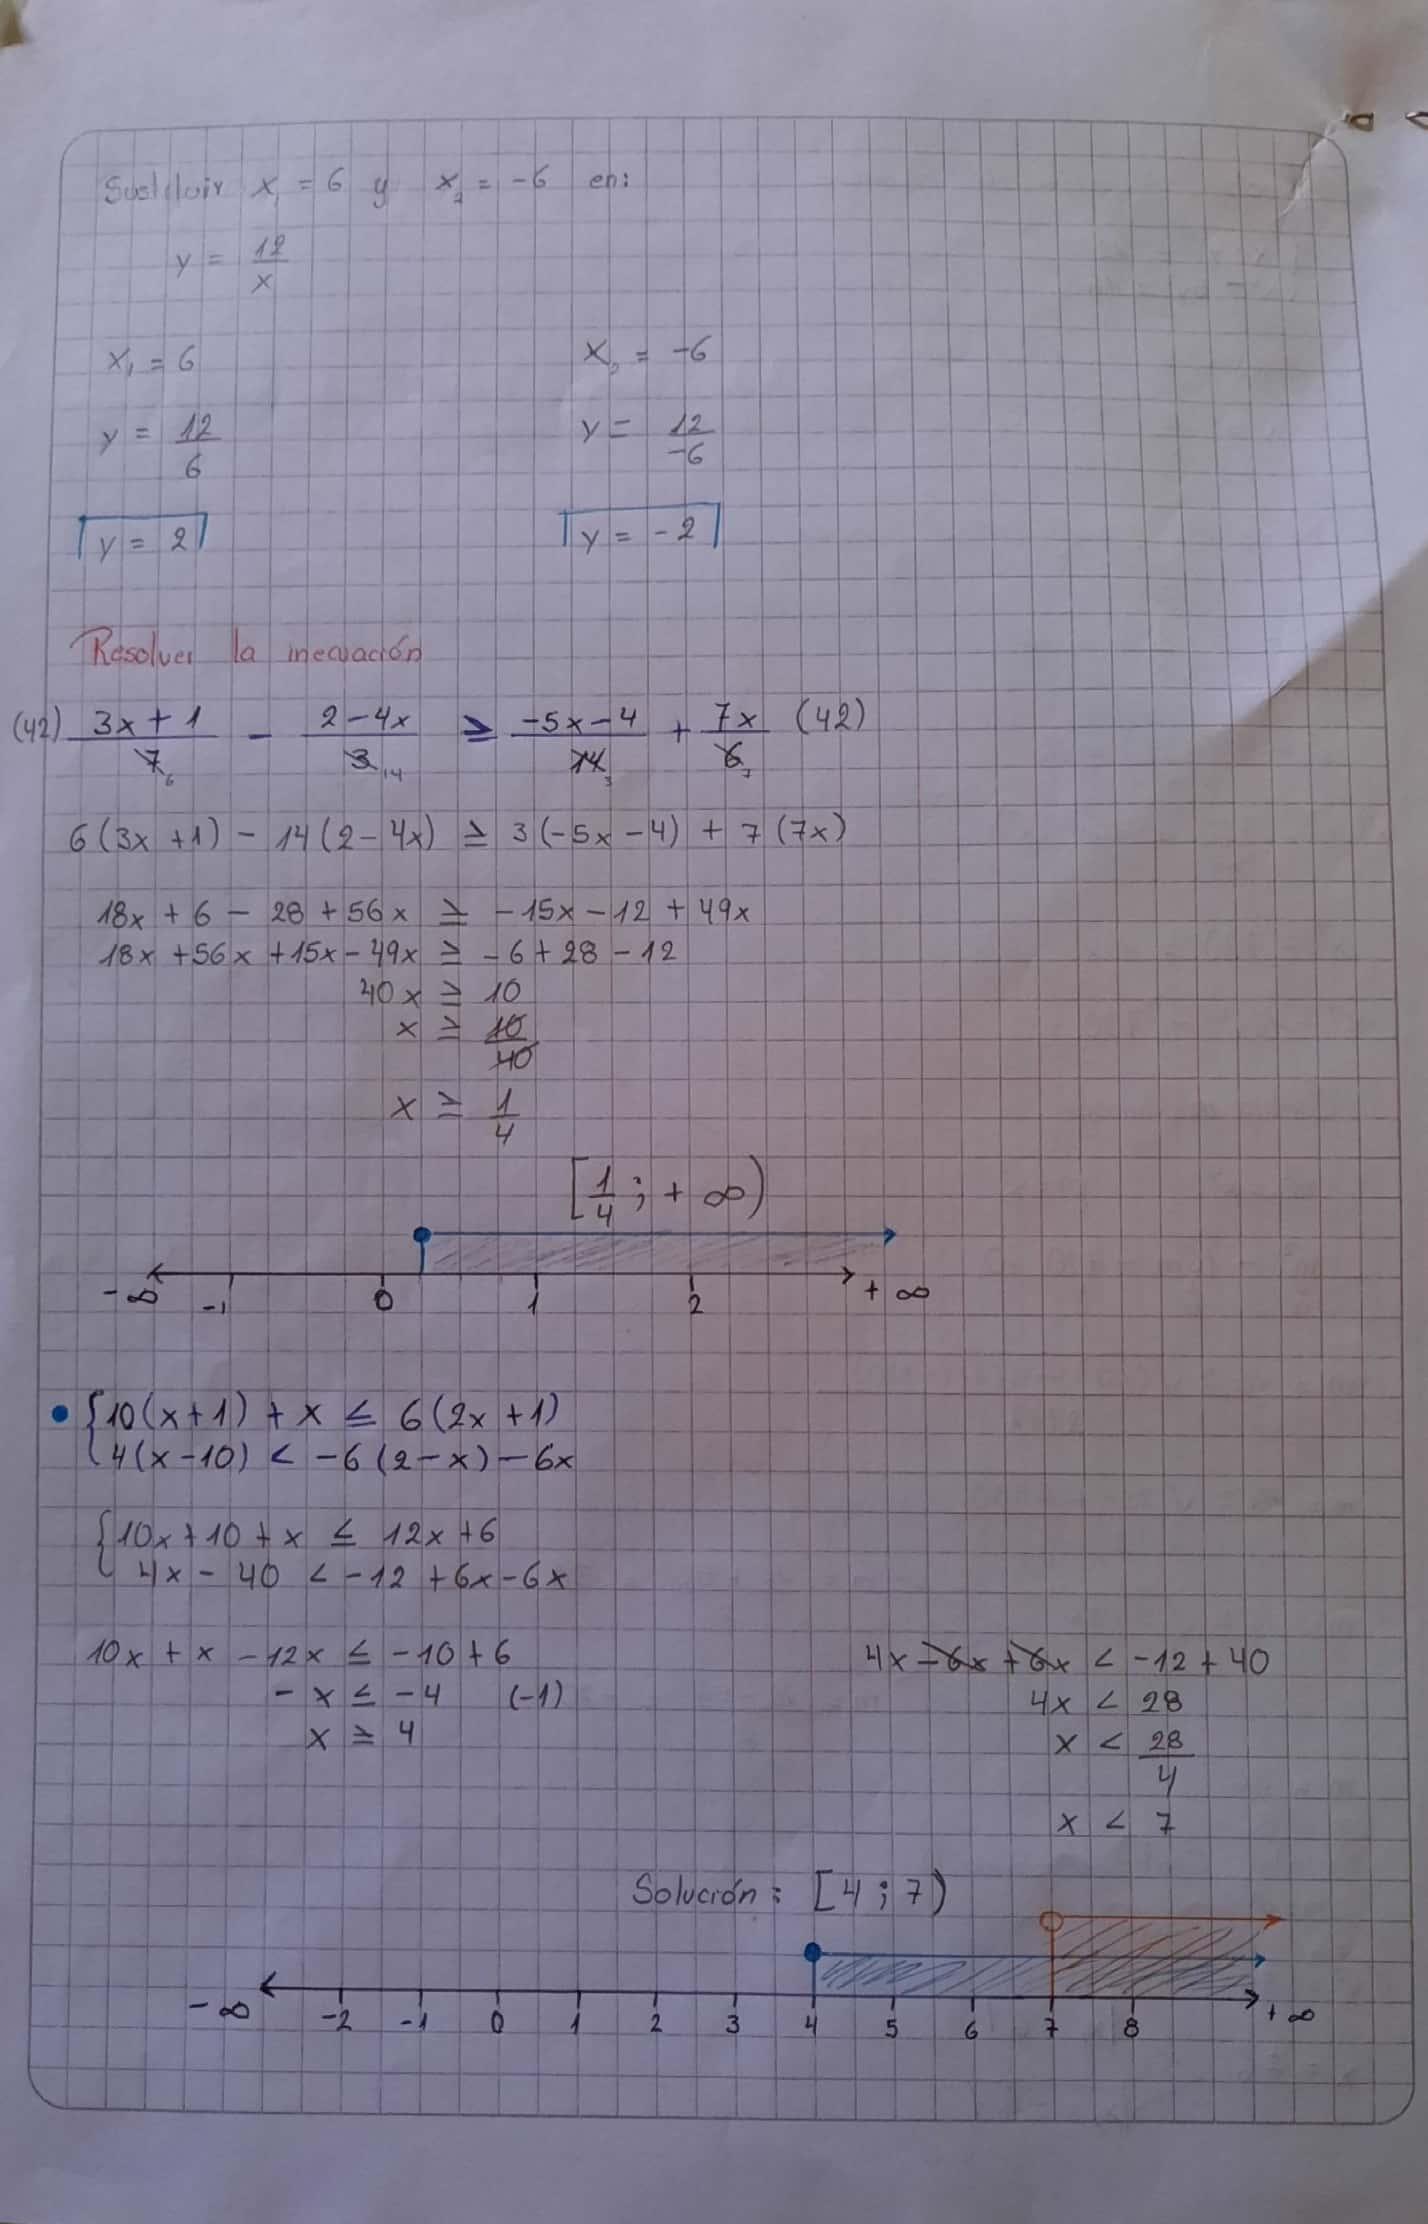 Sustituir x₁ = 6 y x₂ = -6 en:
y = 12/x
x₁ = 6 x₂ = -6
y = 12/6 y = 12/-6
y = 2 y = -2
Resolver la inecuación
(42) (3x + 1)/7 - (2 - 4x)/3 ≥ (-5x - 4)/14 + 7x/6 (42)
6 14 3 7
6(3x + 1) - 14(2 - 4x) ≥ 3(-5x - 4) + 7(7x)
18x + 6 - 28 + 56x ≥ -15x - 12 + 49x
18x + 56x + 15x - 49x ≥ -6 + 28 - 12
40x ≥ 10
x ≥ 10/40
x ≥ 1/4
[1/4 ; + ∞)
-∞ -1 0 1 2 + ∞
• {10(x+1) + x ≤ 6(2x + 1)
4(x - 10) < -6(2 - x) - 6x
{10x + 10 + x ≤ 12x + 6
4x - 40 < -12 + 6x - 6x
10x + x - 12x ≤ -10 + 6 4x - 6x + 6x < -12 + 40
- x ≤ -4 (-1) 4x < 28
x ≥ 4 x < 28/4
x < 7
Solución: [4 ; 7)
-∞ -2 -1 0 1 2 3 4 5 6 7 8 + ∞